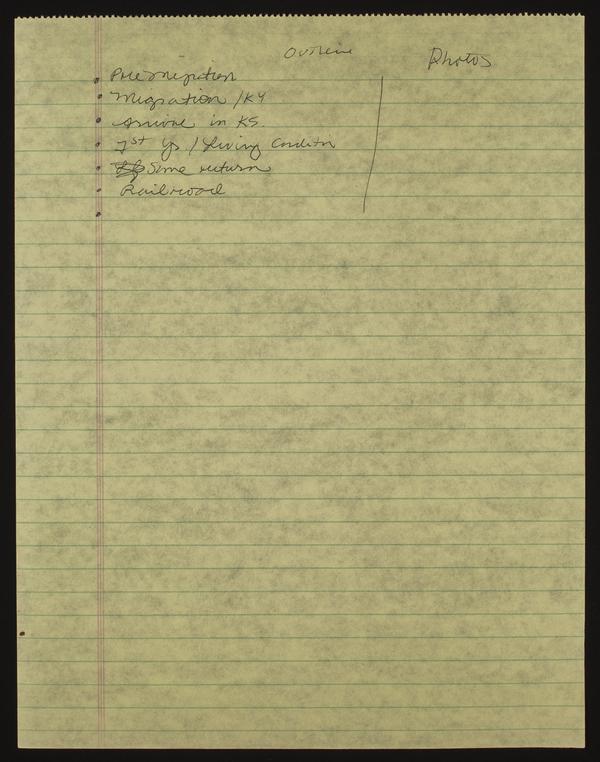 Outline
Photos
Pre migration
Migration / KY
Arrive in KS.
1st yr / Living Condition
Some return
Railroad